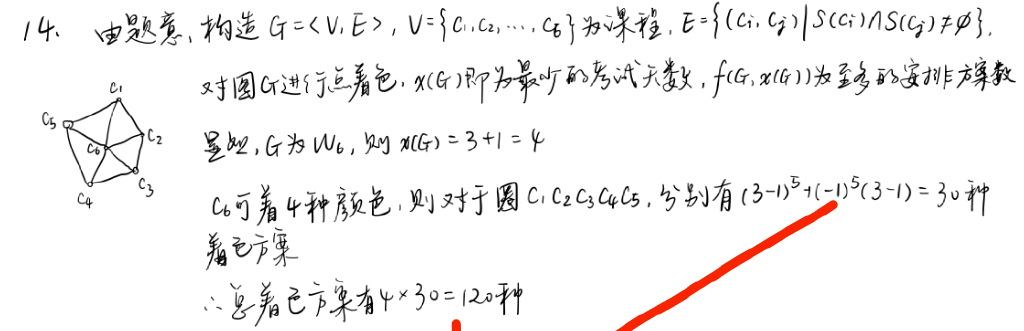 14. 由题意,构造 G=<V,E>, V={C₁,C₂,…,C₆}为课程, E={(Ci,Cj)|S(Ci)∩S(Cj)≠∅}.
对图G进行点着色, x(G)即为最少的考试天数, f(G,x(G))为至多的安排方案数
显然, G为W₆, 则 x(G)=3+1=4
C₆可着4种颜色, 则对于圈C₁C₂C₃C₄C₅, 分别有(3-1)⁵+(-1)⁵(3-1)=30种
着色方案
∴总着色方案有4×30=120种
C₁
C₅
C₂
C₆
C₃
C₄